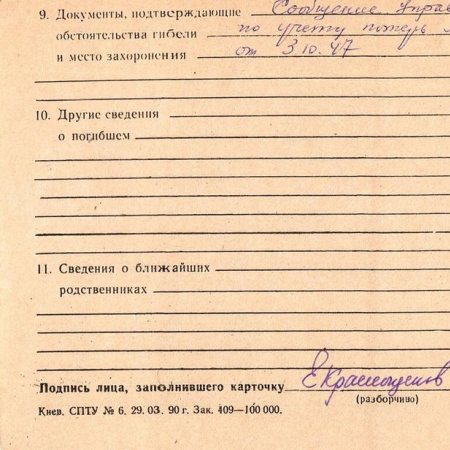 9. Документы, подтверждающие Сообщение Управ
обстоятельства гибели по учету потерь
и место захоронения от 3 10. 47
10. Другие сведения
о погибшем
11. Сведения о ближайших
родственниках
Подпись лица, заполнившего карточку
(разборчиво)
Киев. СПТУ № 6, 29. 03. 90 г. Зак. 409—100 000.